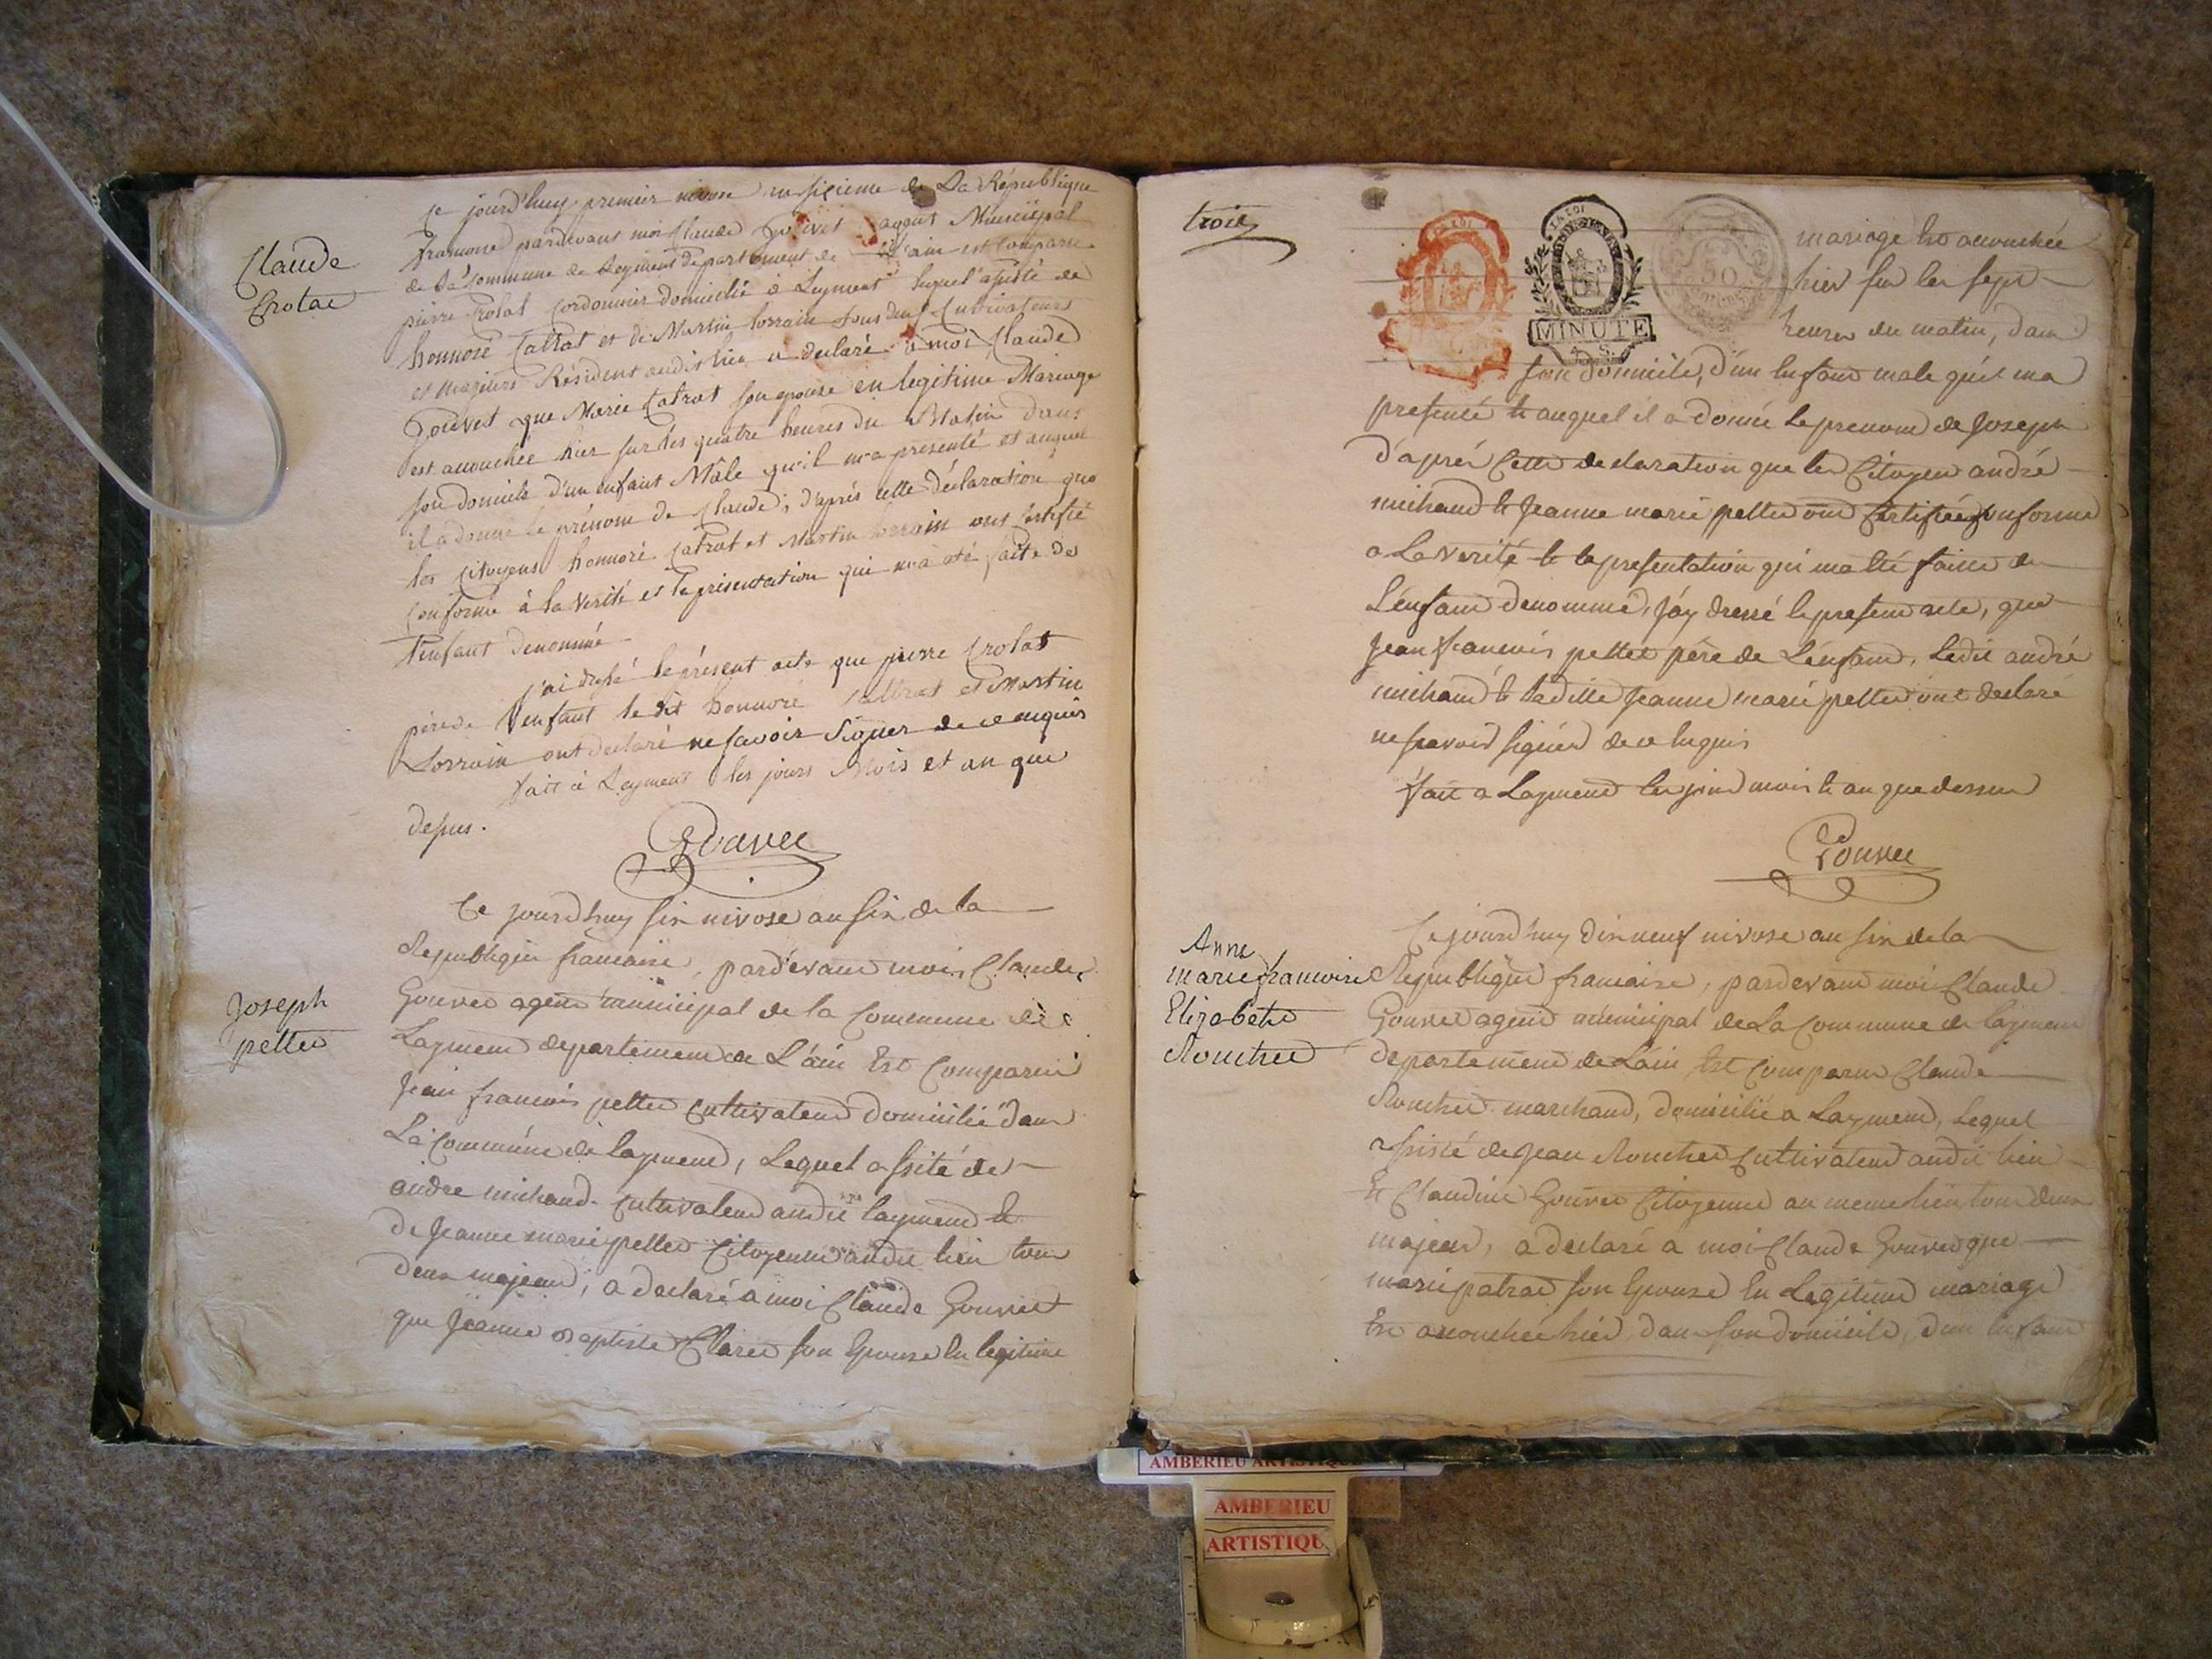 Claude
Crolat
Ce jourd'huy premier nivose an sixieme de La République
francoise pardevant moi Claude Gouvet agent Municipal
de La Commune de Leyment département de L'ain est comparu
pierre Crolat Cordonnier domicilié à Leyment lequel assisté de
honnoré Catrat et de Martin Lorrain tous deux Cultivateurs
et majeurs Résident audit lieu a declaré à moi Claude
Gouvet que Marie Catrat son epouse en legitime Mariage
est accouchée hier sur les quatre heures du Matin dans
son domicile d'un enfant Mâle qu'il m'a presenté et auquel
il a donné le prénom de Claude; d'après cette déclaration que
les Citoyens honnoré Catrat et Martin Lorrain ont Certifié
conforme à la Verité et la présentation qui m'a été faite de
l'enfant denommé
j'ai dressé le présent acte que pierre Crolat
père de l'enfant le dit honnoré Cattrat et Martin
Lorrain ont declaré ne savoir Signer de ce enquis
fait à Leyment les jours Mois et an que
dessus.
Gouvet
Joseph
pellet
Ce jourdhuy six nivose an six de la
Republique francaise, pardevant moi Claude
Gouvet agent municipal de la Commune de
Layment departement de L'ain Est Comparu
Jean francois pellet cultivateur domicilié dans
La Commune de layment, Lequel assité de
andre michaud cultivateur audit layment et
de Jeanne marie pellet Citoyenne audit lieu tous
deux majeurs, a declaré a moi Claude Gouvet
que Jeanne Baptiste Claret son Epouse En legitime
trois
LA LOI
LA LOI
MINUTE
50
mariage Est accouchée
hier sur les sept
heures du matin, dans
son domicile, d'un Enfant male qu'il m'a
presenté et auquel il a donné le prenom de Joseph
d'aprés Cette declaration que les Citoyens andré
michaud et Jeanne marie pellet ont Certifiée Conforme
a La verité et la presentation qui m'a Eté faitte de
L'enfant denommé, J'ay dressé le present acte, que
Jean francois pellet père de L'enfant, Ledit andré
michaud et laditte Jeanne marie pellet ont declaré
ne scavoir signer de ce Enquis
fait a Layment les jour mois et an que dessus
Gouvet
Anne
marie francoise
Elizabeth
Rouchet
Ce jourdhuy dix neuf nivose an six de la
Republique francaise, pardevant moi Claude
Gouvet agent municipal de La Commune de layment
departement de Lain, Est Comparu Claude
Rouchet marchand, domicilié a Layment, Lequel
assisté de Jean Rouchet Cultivateur audit lieu
Et Claudine Gouvet Citoyenne au meme lieu tous deux
majeurs, a declaré a moi Claude Gouvet que
marie patrat son Epouse En Legitime mariage
Est accouchée hier, dans son domicile, d'un Enfant
AMBERIEU ARTISTIQUE
AMBERIEU
ARTISTIQU